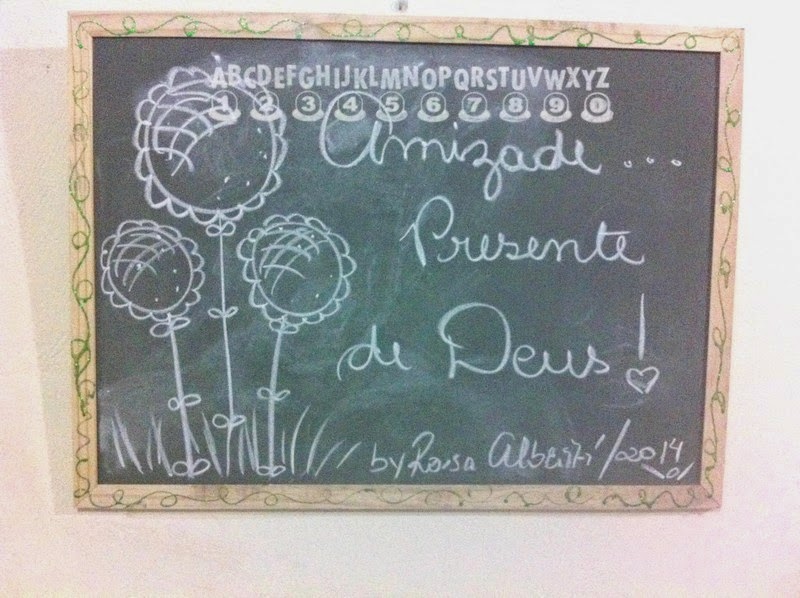 ABCDEFGHIJKLMNOPQRSTUVWXYZ
1 2 3 4 5 6 7 8 9 0
Amizade...
Presente
de Deus!
by Raisa Alberti/2014